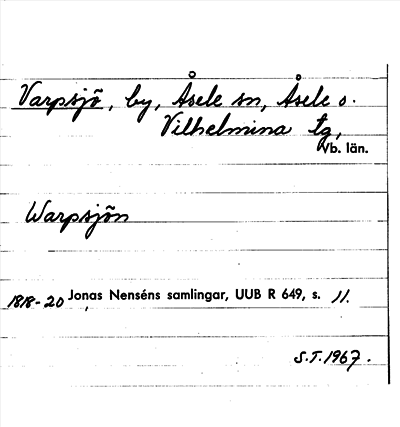 Varpsjö, by, Åsele sn, Åsele o.
Vilhelmina tg,
Vb. län.
Warpsjön
1818-20 Jonas Nenséns samlingar, UUB R 649, s. 11.
S.T. 1967.